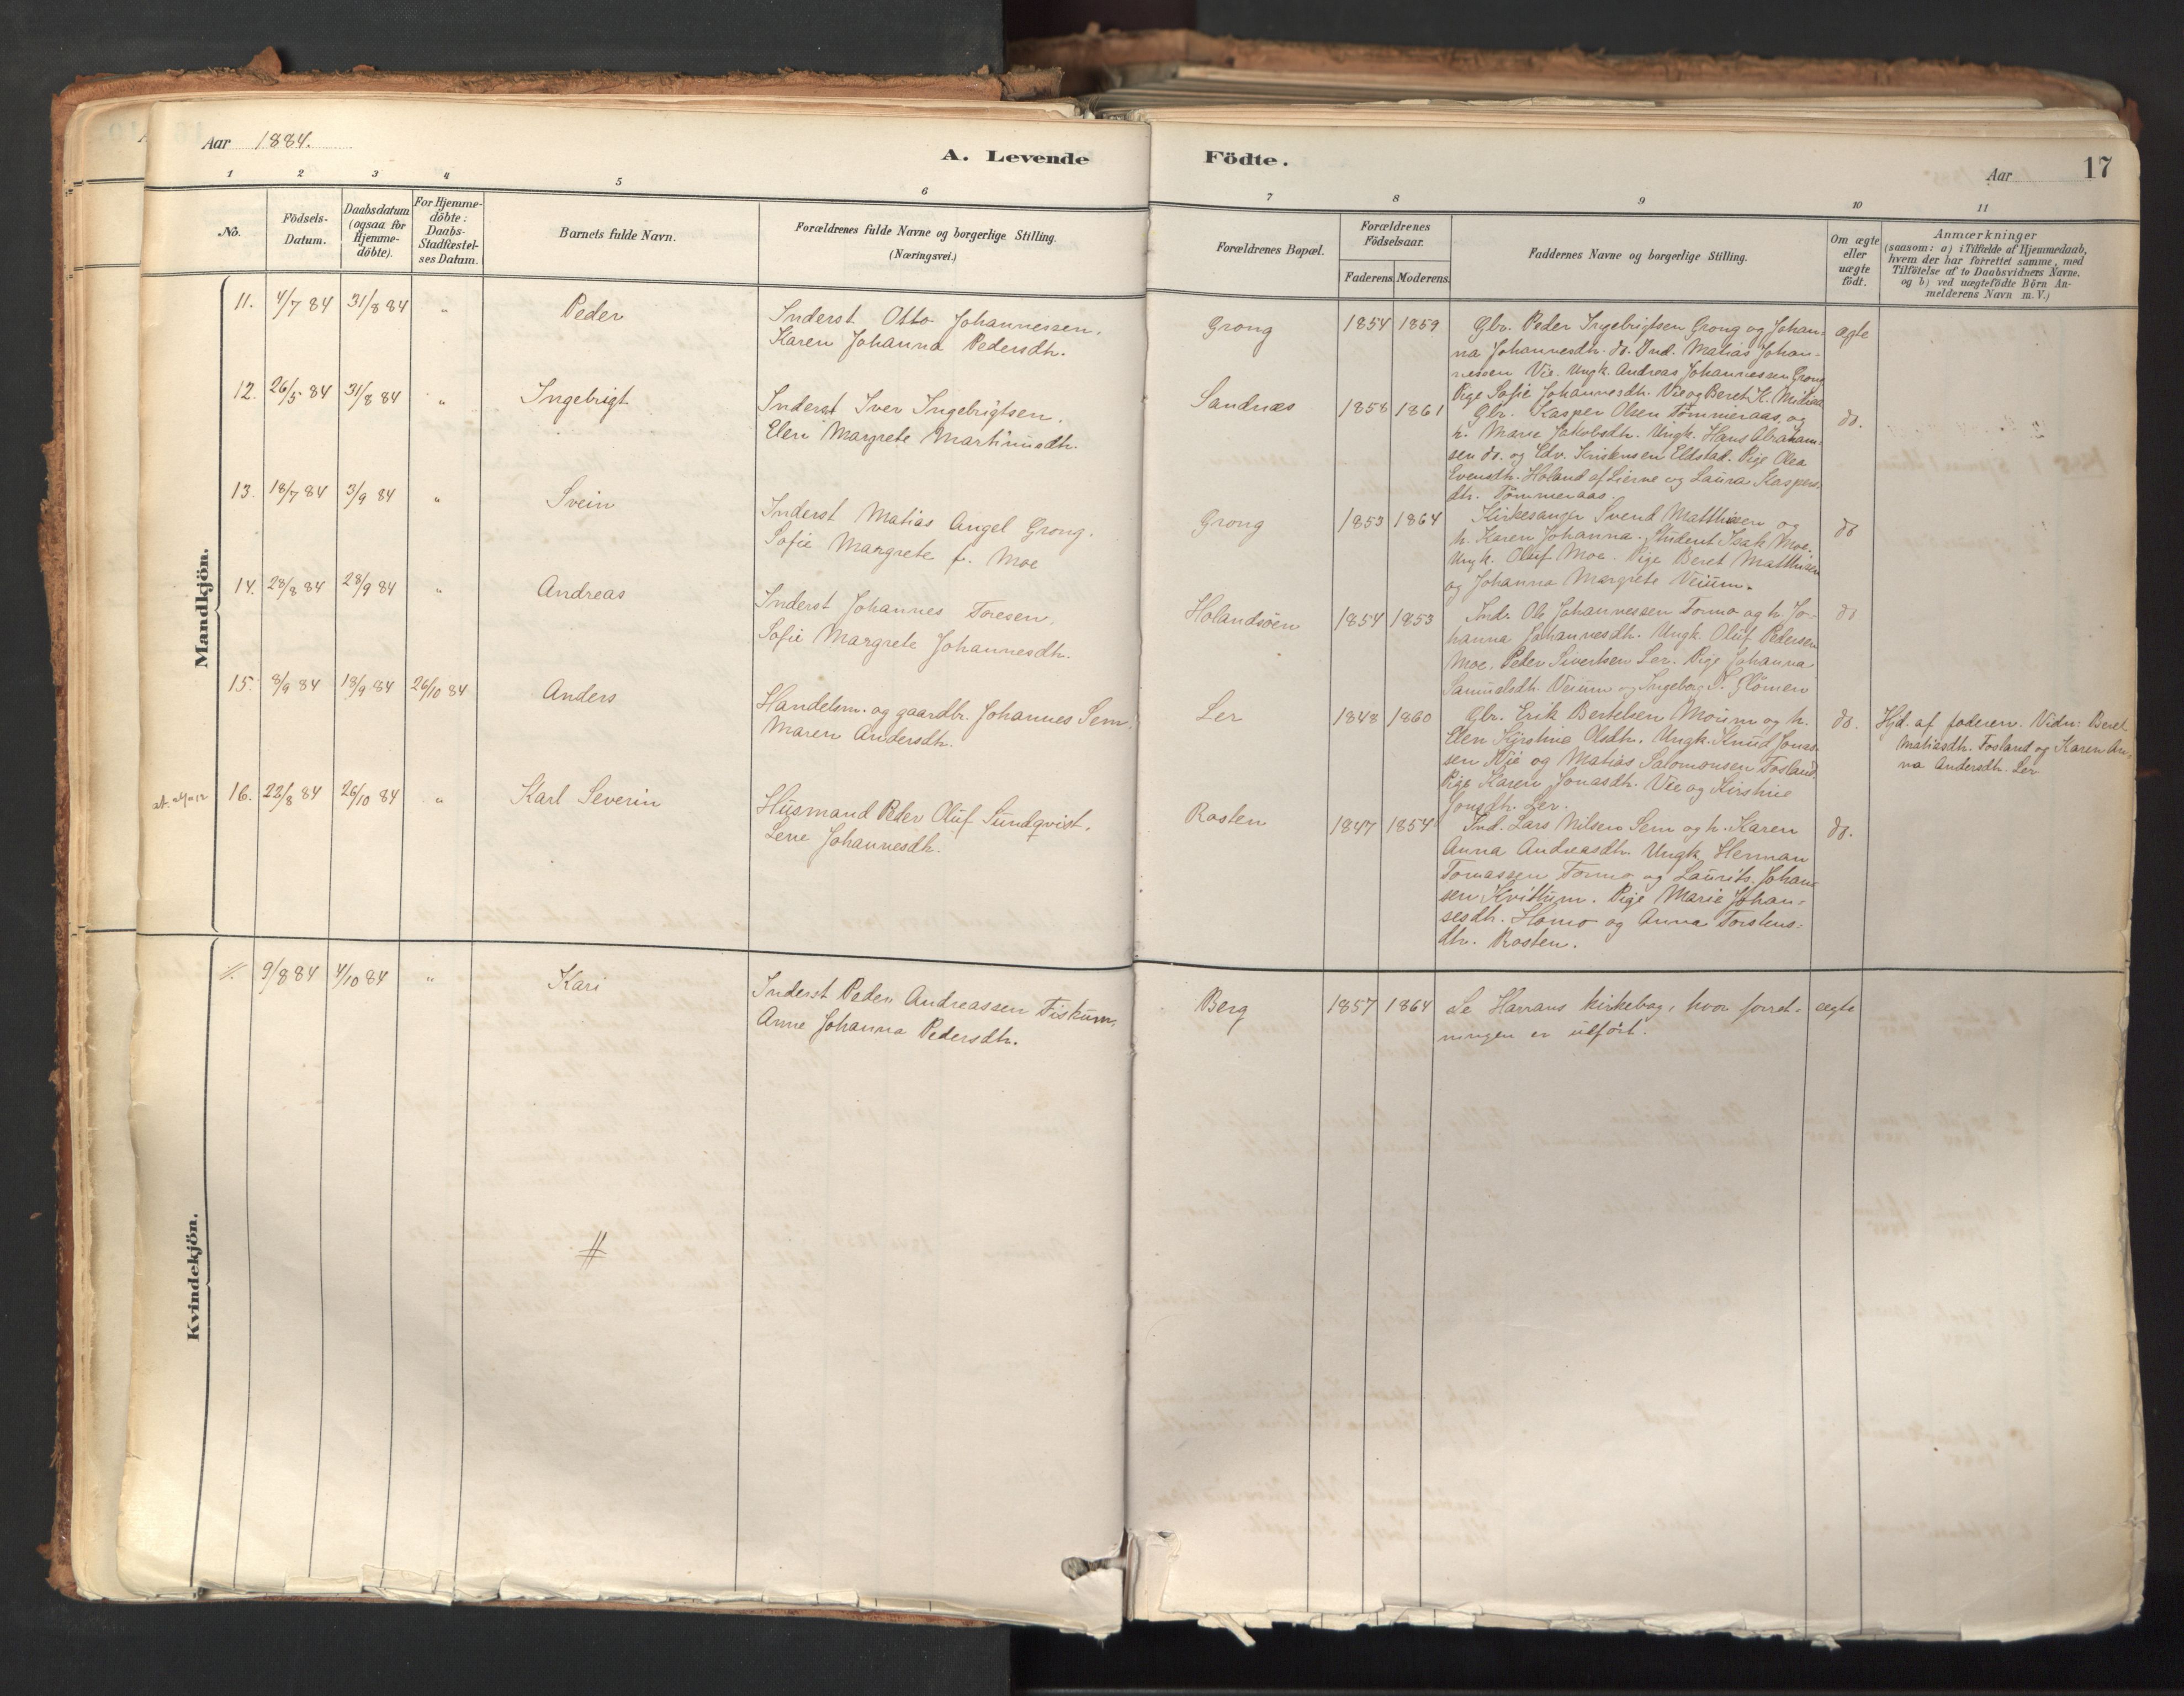 Aar 1884.
A. Levende Födte.
Aar
17
1 2 3 4 5 6 7 8 9 10 11
No.
Födsels-
Datum.
Daabsdatum
(ogsaa for
Hjemme-
döbte).
For Hjemme-
döbte:
Daabs-
Stadfæstel-
ses Datum.
Barnets fulde Navn.
Forældrenes fulde Navne og borgerlige Stilling.
(Næringsvei.)
Forældrenes Bopæl.
Forældrenes
Födselsaar.
Faderens. Moderens.
Faddernes Navne og borgerlige Stilling.
Om ægte
eller
uægte
födt.
Anmærkninger
(saasom: a) i Tilfælde af Hjemmedaab,
hvem der har forrettet samme, med
Tilföielse af to Daabsvidners Navne.
og b) ved uægtefödte Börn An-
melderens Navn m. V.)
Mandkjön.
11. 4/7 84 31/8 84 " Peder
Inderst Otto Johannessen.
Karen Johanna Pedersdh.
Grong 1854 1859
Gbr. Peder Ingebrigtsen Grong og Johan-
na Johannesdh. do. Ind. Matias Johan-
nessen Vie. Ungk. Andreas Johannessen Grong
Pige Sofie Johannesdh. Vie og Beret K.
ægte
12. 26/5 84 31/8 84 " Ingebrigt
Inderst Iver Ingebrigtsen.
Elen Margrete Martinusdh.
Sandnæs 1858 1861
Gbr. Kasper Olsen Tømmeraas, og
h. Marie Jakobsdh. Ungk. Hans Abraham-
sen do. og Edv. Kristensen Eldstad. Pige Olea
Evensdh. Holand af Lierne og Laura Kaspers-
dh. Tømmeraas.
do.
13. 18/7 84 3/9 84 " Svein
Inderst Matias Angel Grong.
Sofie Margrete f. Moe
Grong 1853 1864
Kirkesanger Svend Matthisen og
h. Karen Johanna. Student Isak Moe.
Ungk. Oluf Moe. Pige Beret Matthisen
og Johanna Margrete Veium.
do
14. 28/8 84 28/9 84 " Andreas
Inderst Johannes Toresen.
Sofie Margrete Johannesdh.
Holandsöen 1854 1853
Ind. Ole Johannessen Formo og h. Jo-
hanna Johannesdh. Ungk. Oluf Pedersen
Moe. Peder Sivertsen Ler. Pige Johanna
Samuelsdh. Veium og Ingeborg S. Glömen
do
15. 8/9 84 18/9 84 26/10 84 Anders
Handelsm. og gaardbr. Johannes Sem.
Maren Andersdh.
Ler 1848 1860
Gbr. Erik Bertelsen Moum og h.
Elen Kirstine Olsdh. Ungk. Knud Jonas-
sen Vie og Matias Salomonsen Fosland
Pige Karen Jonasdh. Vie og Kirstine
Jonsdh. Ler.
do.
Hjd. af faderen. Vidn: Beret
Matiasdh. Fosland og Karen An-
na Andersdh. Ler
16. 22/8 84 26/10 84 " Karl Severin
Husmand Peder Oluf Sundqvist.
Lene Johannesdh.
Rosten 1847 1854
Ind. Lars Nilsen Sem og h. Karen
Anna Andreasdh. Ungk. Herman
Tomassen Formo og Laurits Johan-
sen Kvittum. Pige Marie Johan-
sesdh. Homo og Anna Torstens-
dh. Rosten.
do.
Kvindekjön.
//. 9/8 84 4/10 84 " Kari
Inderst Peder Andreassen Fiskum.
Anne Johanna Pedersdh.
Berg 1857 1864
Se Harrans kirkebog, hvor forret-
ningen er udfört.
ægte